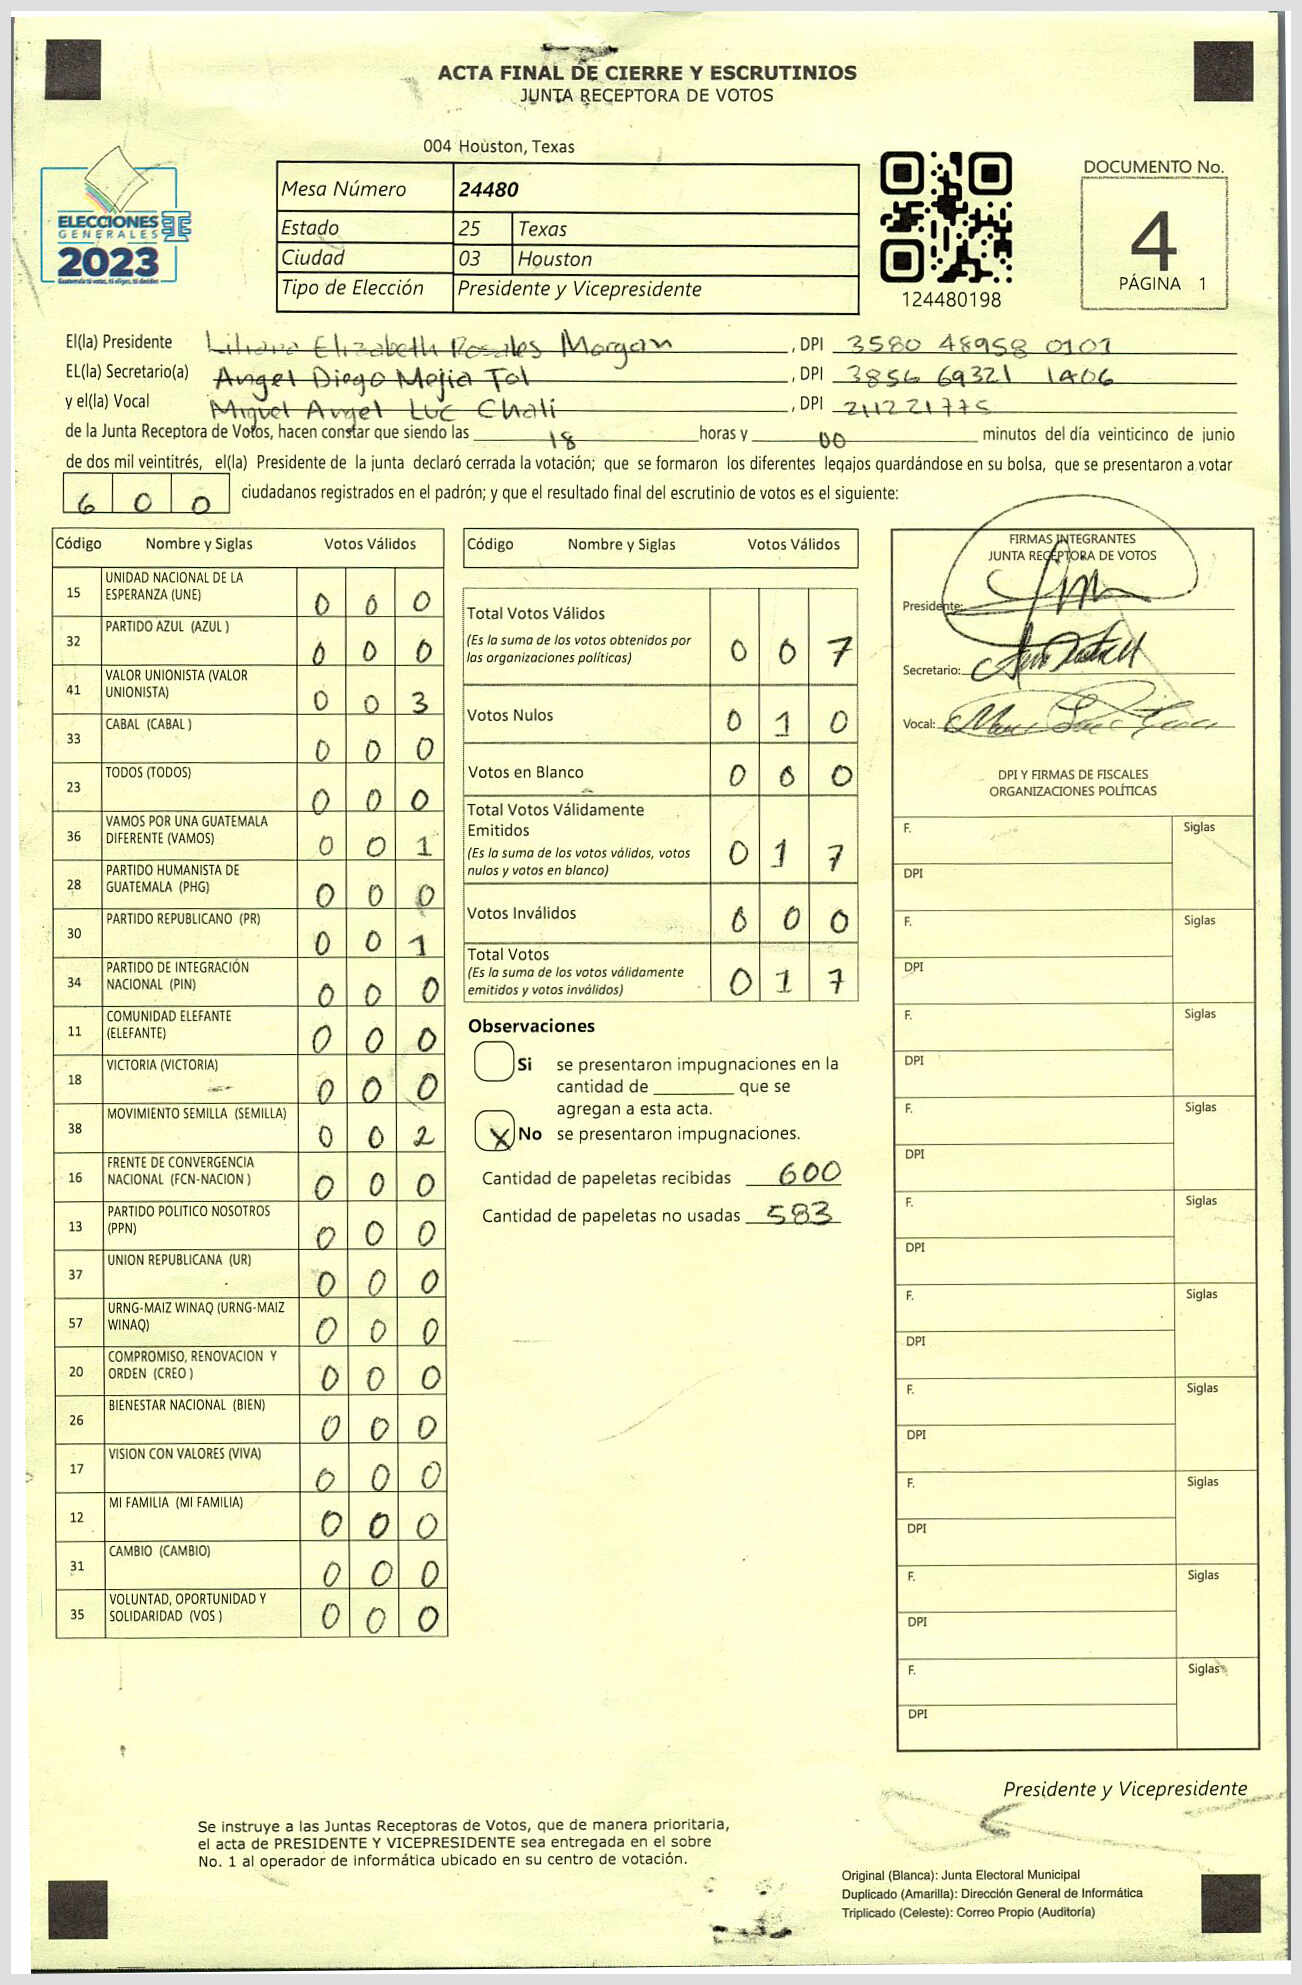 ACTA FINAL DE CIERRE Y ESCRUTINIOS
JUNTA RECEPTORA DE VOTOS
004 Houston, Texas
ELECCIONES
GENERALES
2023
Mesa Número 24480
Estado 25 Texas
Ciudad 03 Houston
Tipo de Elección Presidente y Vicepresidente
124480198
DOCUMENTO No.
4
PÁGINA 1
El(la) Presidente Liliana Elizabeth Rosales Morgan , DPI 3580 48958 0101
EL(la) Secretario(a) Angel Diego Mejia Tol , DPI 3856 69321 1406
y el(la) Vocal Miguel Angel Luc Chali , DPI 211221775
de la Junta Receptora de Votos, hacen constar que siendo las 18 horas y 00 minutos del día veinticinco de junio
de dos mil veintitrés, el(la) Presidente de la junta declaró cerrada la votación; que se formaron los diferentes legajos guardándose en su bolsa, que se presentaron a votar
6 0 0 ciudadanos registrados en el padrón; y que el resultado final del escrutinio de votos es el siguiente:
Código Nombre y Siglas Votos Válidos
15 UNIDAD NACIONAL DE LA ESPERANZA (UNE) 0 0 0
32 PARTIDO AZUL (AZUL ) 0 0 0
41 VALOR UNIONISTA (VALOR UNIONISTA) 0 0 3
33 CABAL (CABAL ) 0 0 0
23 TODOS (TODOS) 0 0 0
36 VAMOS POR UNA GUATEMALA DIFERENTE (VAMOS) 0 0 1
28 PARTIDO HUMANISTA DE GUATEMALA (PHG) 0 0 0
30 PARTIDO REPUBLICANO (PR) 0 0 1
34 PARTIDO DE INTEGRACIÓN NACIONAL (PIN) 0 0 0
11 COMUNIDAD ELEFANTE (ELEFANTE) 0 0 0
18 VICTORIA (VICTORIA) 0 0 0
38 MOVIMIENTO SEMILLA (SEMILLA) 0 0 2
16 FRENTE DE CONVERGENCIA NACIONAL (FCN-NACION ) 0 0 0
13 PARTIDO POLITICO NOSOTROS (PPN) 0 0 0
37 UNION REPUBLICANA (UR) 0 0 0
57 URNG-MAIZ WINAQ (URNG-MAIZ WINAQ) 0 0 0
20 COMPROMISO, RENOVACION Y ORDEN (CREO ) 0 0 0
26 BIENESTAR NACIONAL (BIEN) 0 0 0
17 VISION CON VALORES (VIVA) 0 0 0
12 MI FAMILIA (MI FAMILIA) 0 0 0
31 CAMBIO (CAMBIO) 0 0 0
35 VOLUNTAD, OPORTUNIDAD Y SOLIDARIDAD (VOS ) 0 0 0
Código Nombre y Siglas Votos Válidos
Total Votos Válidos 0 0 7
(Es la suma de los votos obtenidos por
las organizaciones políticas)
Votos Nulos 0 1 0
Votos en Blanco 0 0 0
Total Votos Válidamente
Emitidos 0 1 7
(Es la suma de los votos válidos, votos
nulos y votos en blanco)
Votos Inválidos 0 0 0
Total Votos 0 1 7
(Es la suma de los votos válidamente
emitidos y votos inválidos)
Observaciones
Si se presentaron impugnaciones en la
cantidad de ________ que se
agregan a esta acta.
X No se presentaron impugnaciones.
Cantidad de papeletas recibidas 600
Cantidad de papeletas no usadas 583
FIRMAS INTEGRANTES
JUNTA RECEPTORA DE VOTOS
Presidente:
Secretario:
Vocal:
DPI Y FIRMAS DE FISCALES
ORGANIZACIONES POLÍTICAS
F. Siglas
DPI
F. Siglas
DPI
F. Siglas
DPI
F. Siglas
DPI
F. Siglas
DPI
F. Siglas
DPI
F. Siglas
DPI
F. Siglas
DPI
F. Siglas
DPI
F. Siglas
DPI
Presidente y Vicepresidente
Se instruye a las Juntas Receptoras de Votos, que de manera prioritaria,
el acta de PRESIDENTE Y VICEPRESIDENTE sea entregada en el sobre
No. 1 al operador de informática ubicado en su centro de votación.
Original (Blanca): Junta Electoral Municipal
Duplicado (Amarilla): Dirección General de Informática
Triplicado (Celeste): Correo Propio (Auditoría)